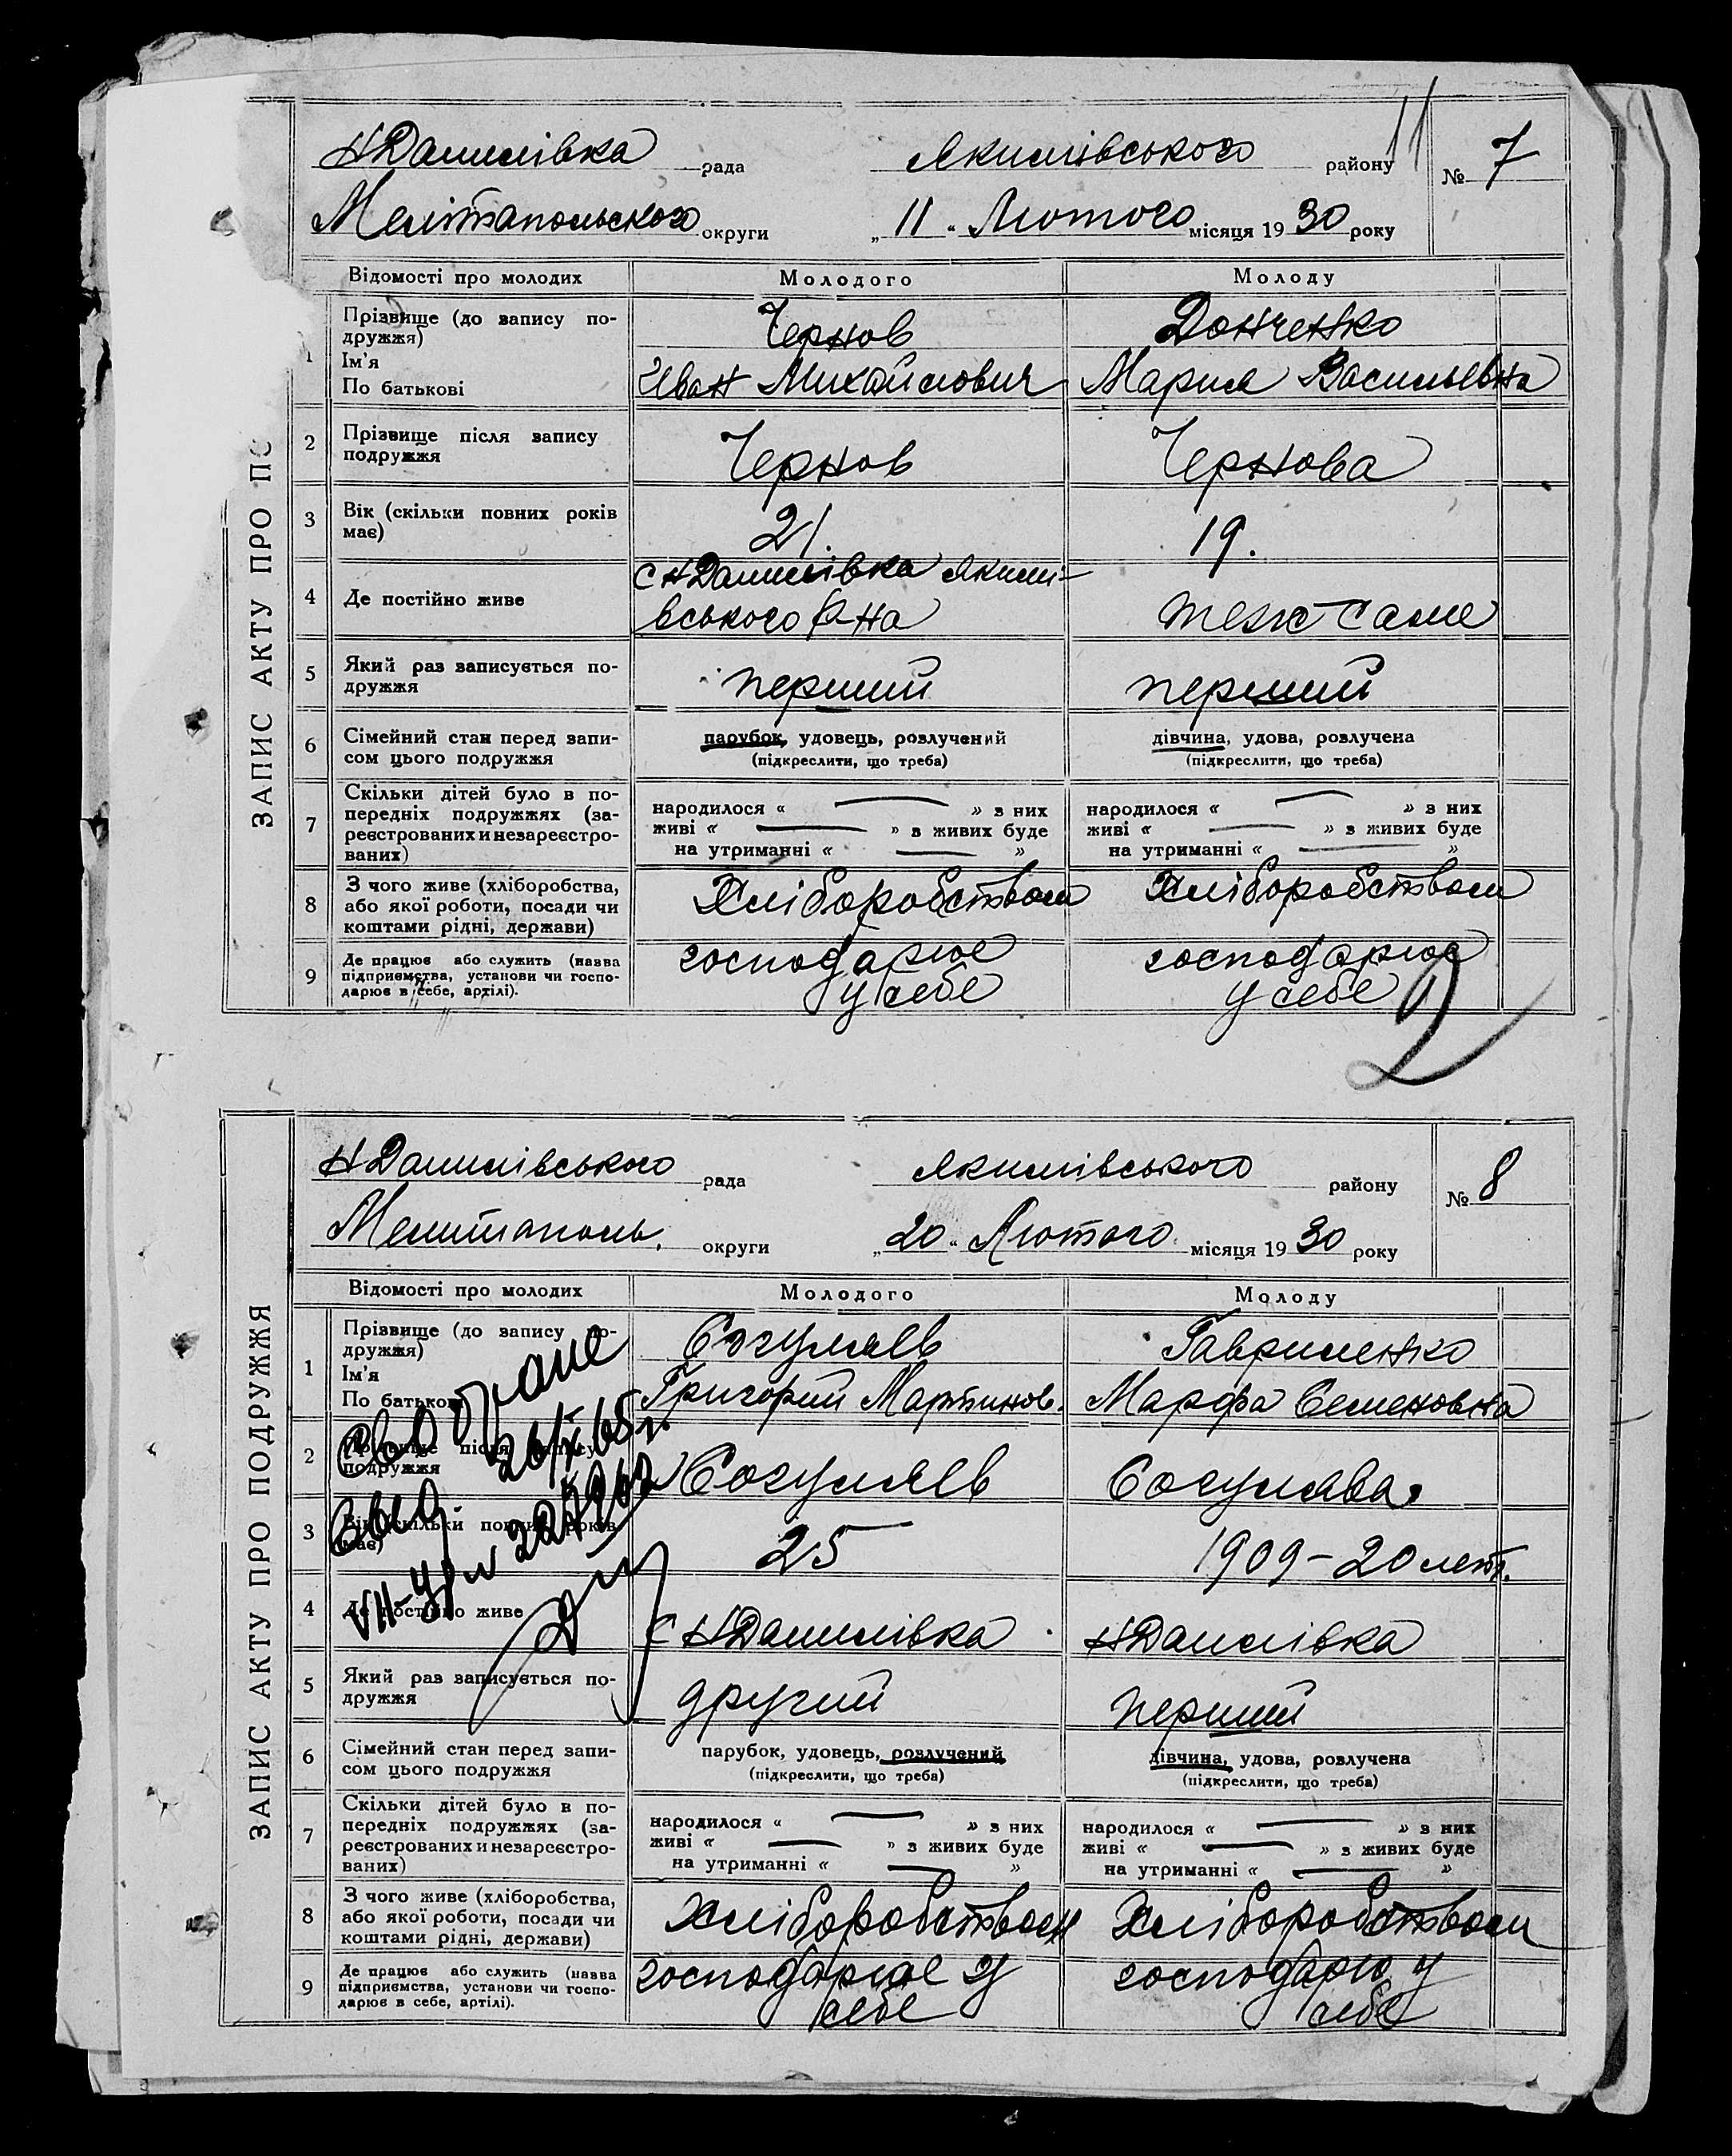 11
НДанилівка рада Якимівського району № 7
Мелітопольского округи „11“ Лютого місяця 1930 року
ЗАПИС АКТУ ПРО ПО
Відомості про молодих Молодого Молоду
1 Прізвище (до запису по-
дружжя) Чернов Донченко
Ім'я
По батькові Иван Михайлович Мария Васильевна
2 Прізвище після запису
подружжя Чернов Чернова
3 Вік (скільки повних років
має) 21. 19.
4 Де постійно живе с НДанилівка Якимі-
вського Р-на теж саме
5 Який раз записується по-
дружжя перший перший
6 Сімейний стан перед запи-
сом цього подружжя парубок, удовець, розлучений дівчина, удова, розлучена
(підкреслити, що треба) (підкреслити, що треба)
7 Скільки дітей було в по-
передніх подружжях (за-
реєстрованих и незареєстро-
ваних)
народилося « — » з них народилося « — » з них
живі « — » з живих буде живі « — » з живих буде
на утриманні « — » на утриманні « — »
8 З чого живе (хліборобства,
або якої роботи, посади чи
коштами рідні, держави) Хліборобством Хліборобством
9 Де працює або служить (назва
підприємства, установи чи госпо-
дарює в себе, артілі). господарює господарює
у себе у себе
2
НДанилівського рада Якимівського району № 8
Мелитополь. округи „20“ Лютого місяця 1930 року
ЗАПИС АКТУ ПРО ПОДРУЖЖЯ
Відомості про молодих Молодого Молоду
1 Прізвище (до запису по-
дружжя) Согуляев Гавриленко
Ім'я
По батькові Григорий Мартинов. Марфа Семеновна
2 Прізвище після запису
подружжя Согуляев Согулява.
3 Вік (скільки повних років
має) 25 1909 – 20 лет.
4 Де постійно живе с НДанилівка НДанилівка
5 Який раз записується по-
дружжя другий перший
6 Сімейний стан перед запи-
сом цього подружжя парубок, удовець, розлучений дівчина, удова, розлучена
(підкреслити, що треба) (підкреслити, що треба)
7 Скільки дітей було в по-
передніх подружжях (за-
реєстрованих и незареєстро-
ваних)
народилося « — » з них народилося « — » з них
живі « — » з живих буде живі « — » з живих буде
на утриманні « — » на утриманні « — »
8 З чого живе (хліборобства,
або якої роботи, посади чи
коштами рідні, держави) Хліборобством Хліборобством
9 Де працює або служить (назва
підприємства, установи чи госпо-
дарює в себе, артілі). господарює у господарю у
себе себе